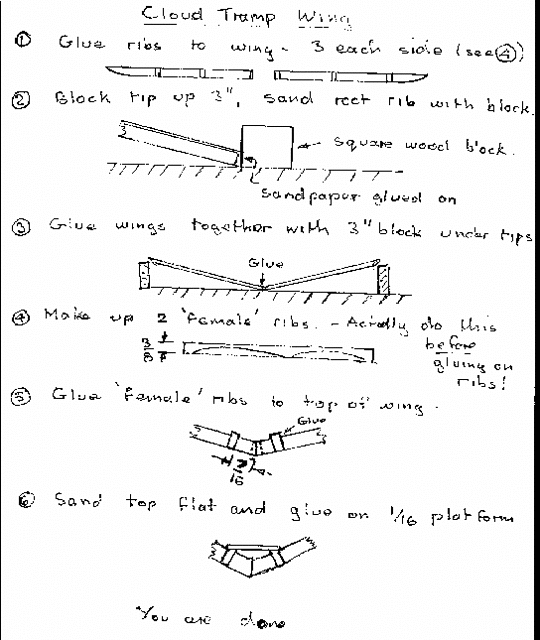 Cloud Tramp Wing
① Glue ribs to wing - 3 each side (see ④)
② Block tip up 3", sand root rib with block.
3"
square wood block.
sandpaper glued on
③ Glue wings together with 3" block under tips
Glue
④ Make up 2 'female' ribs. - Actually do this
before
gluing on
ribs!
3/8
⑤ Glue 'female' ribs to top of wing.
Glue
⑥ Sand top flat and glue on 1/16 platform
You are done